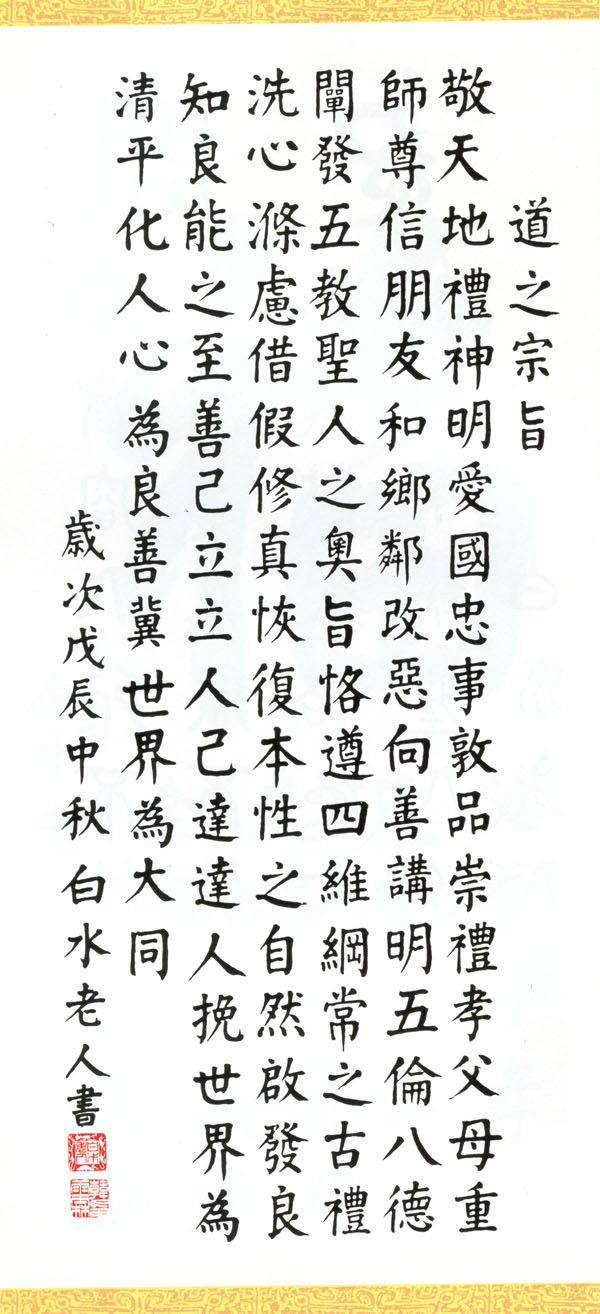 道之宗旨
敬天地禮神明愛國忠事敦品崇禮孝父母重
師尊信朋友和鄉鄰改惡向善講明五倫八德
闡發五教聖人之奧旨恪遵四維綱常之古禮
洗心滌慮借假修真恢復本性之自然啟發良
知良能之至善己立立人己達達人挽世界為
清平化人心為良善冀世界為大同
歲次戊辰中秋白水老人書